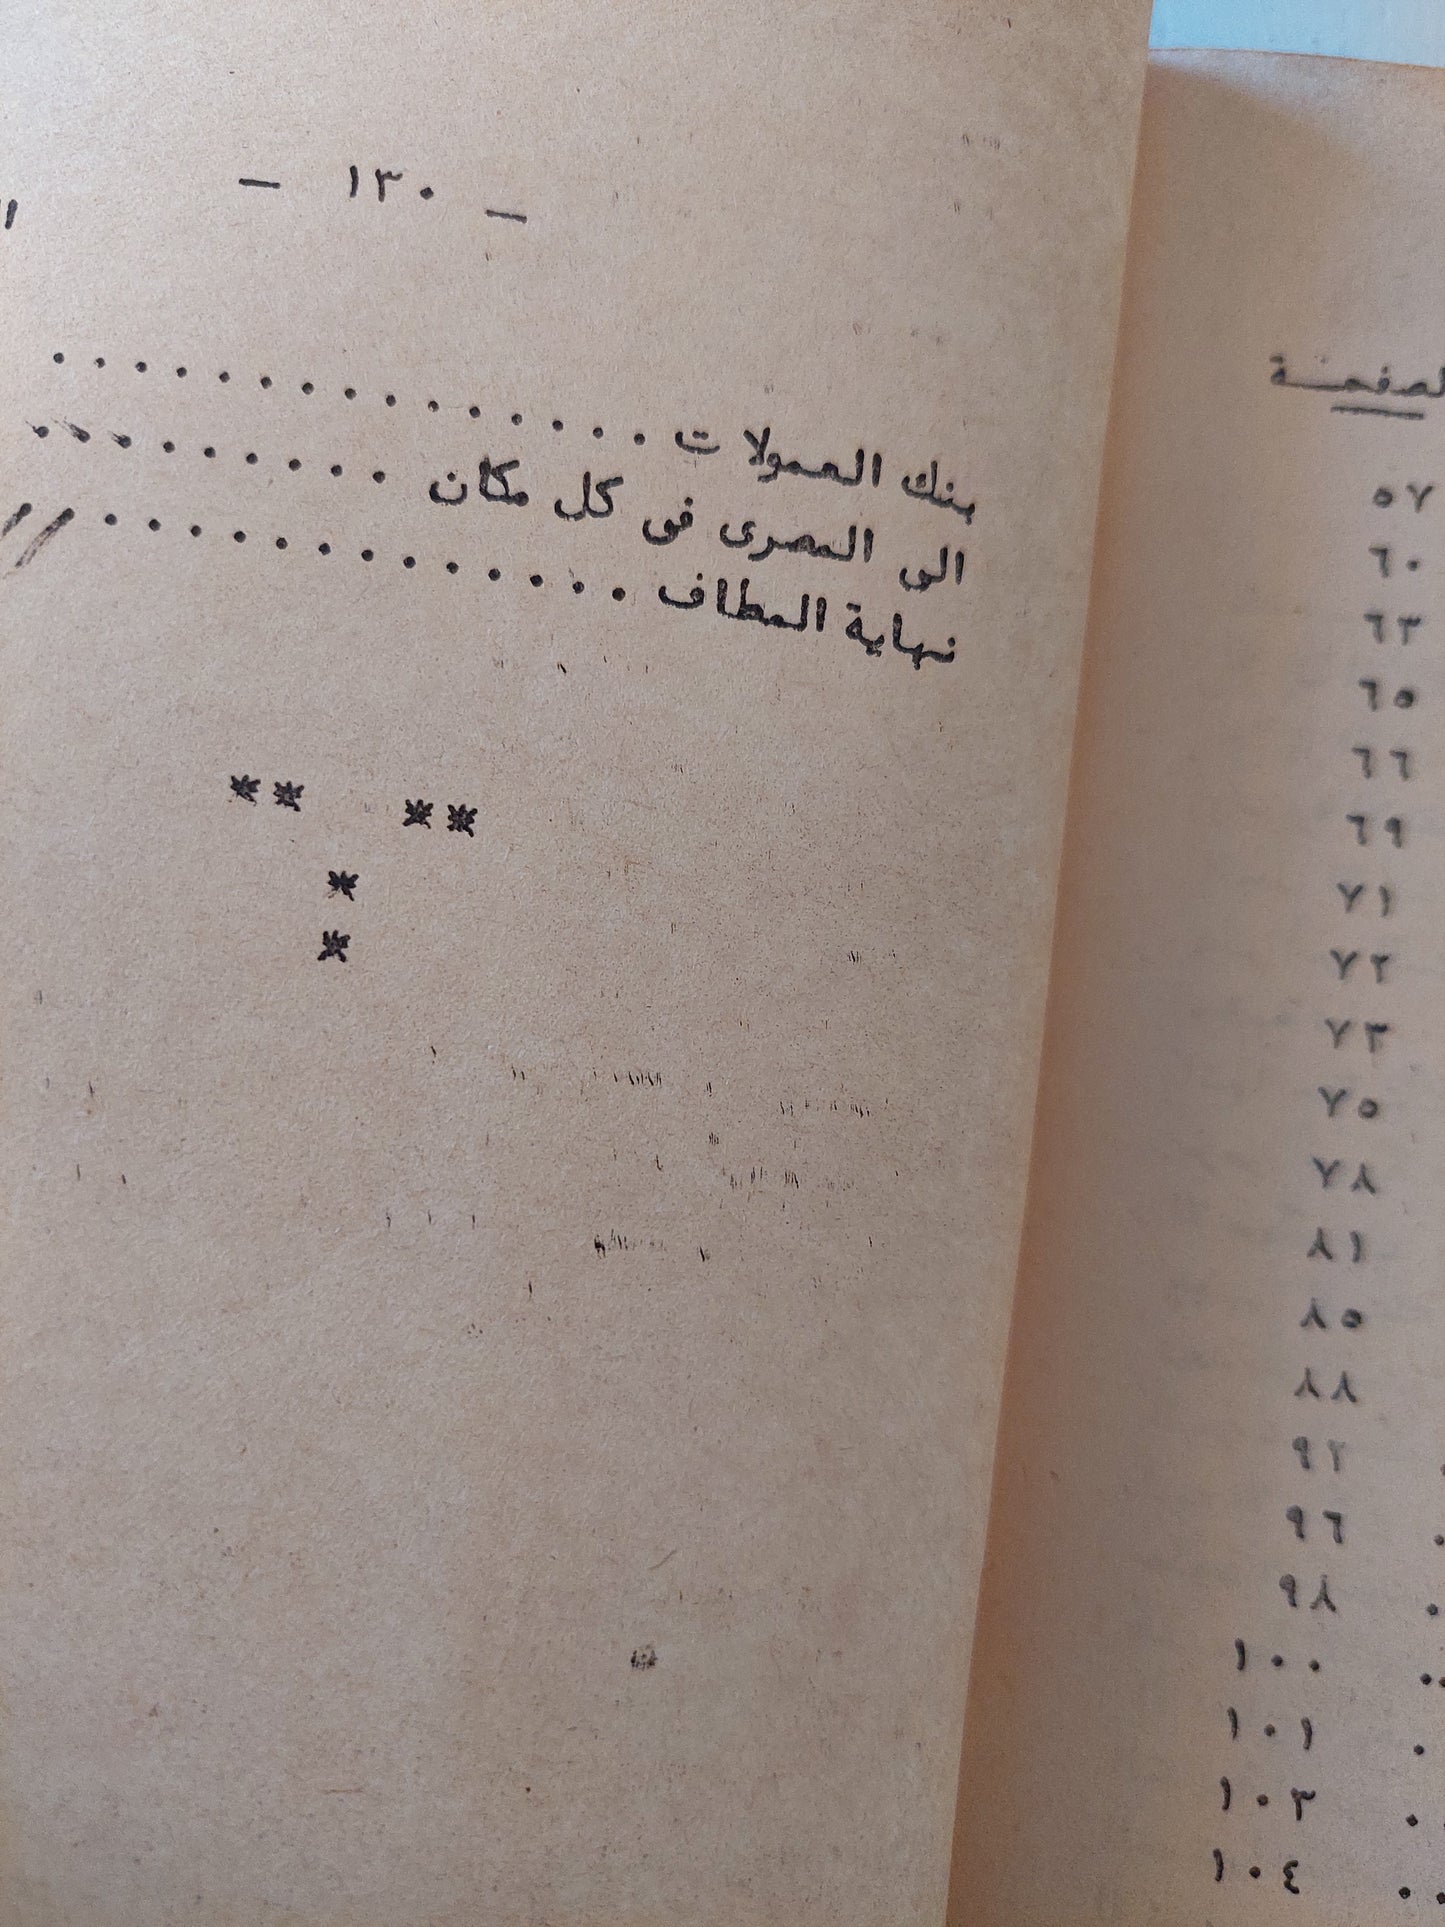 - ١٣٠ -
بنك العمولات . . . . . . . . . . . . . . .
الى المصرى فى كل مكان . . . . . . . . .
نهاية المطاف . . . . . . . . . . . . . . .
** **
*
*
الصفحة
٥٧
٦٠
٦٣
٦٥
٦٦
٦٩
٧١
٧٢
٧٣
٧٥
٧٨
٨١
٨٥
٨٨
٩٢
٩٦
٩٨
١٠٠
١٠١
١٠٣
١٠٤